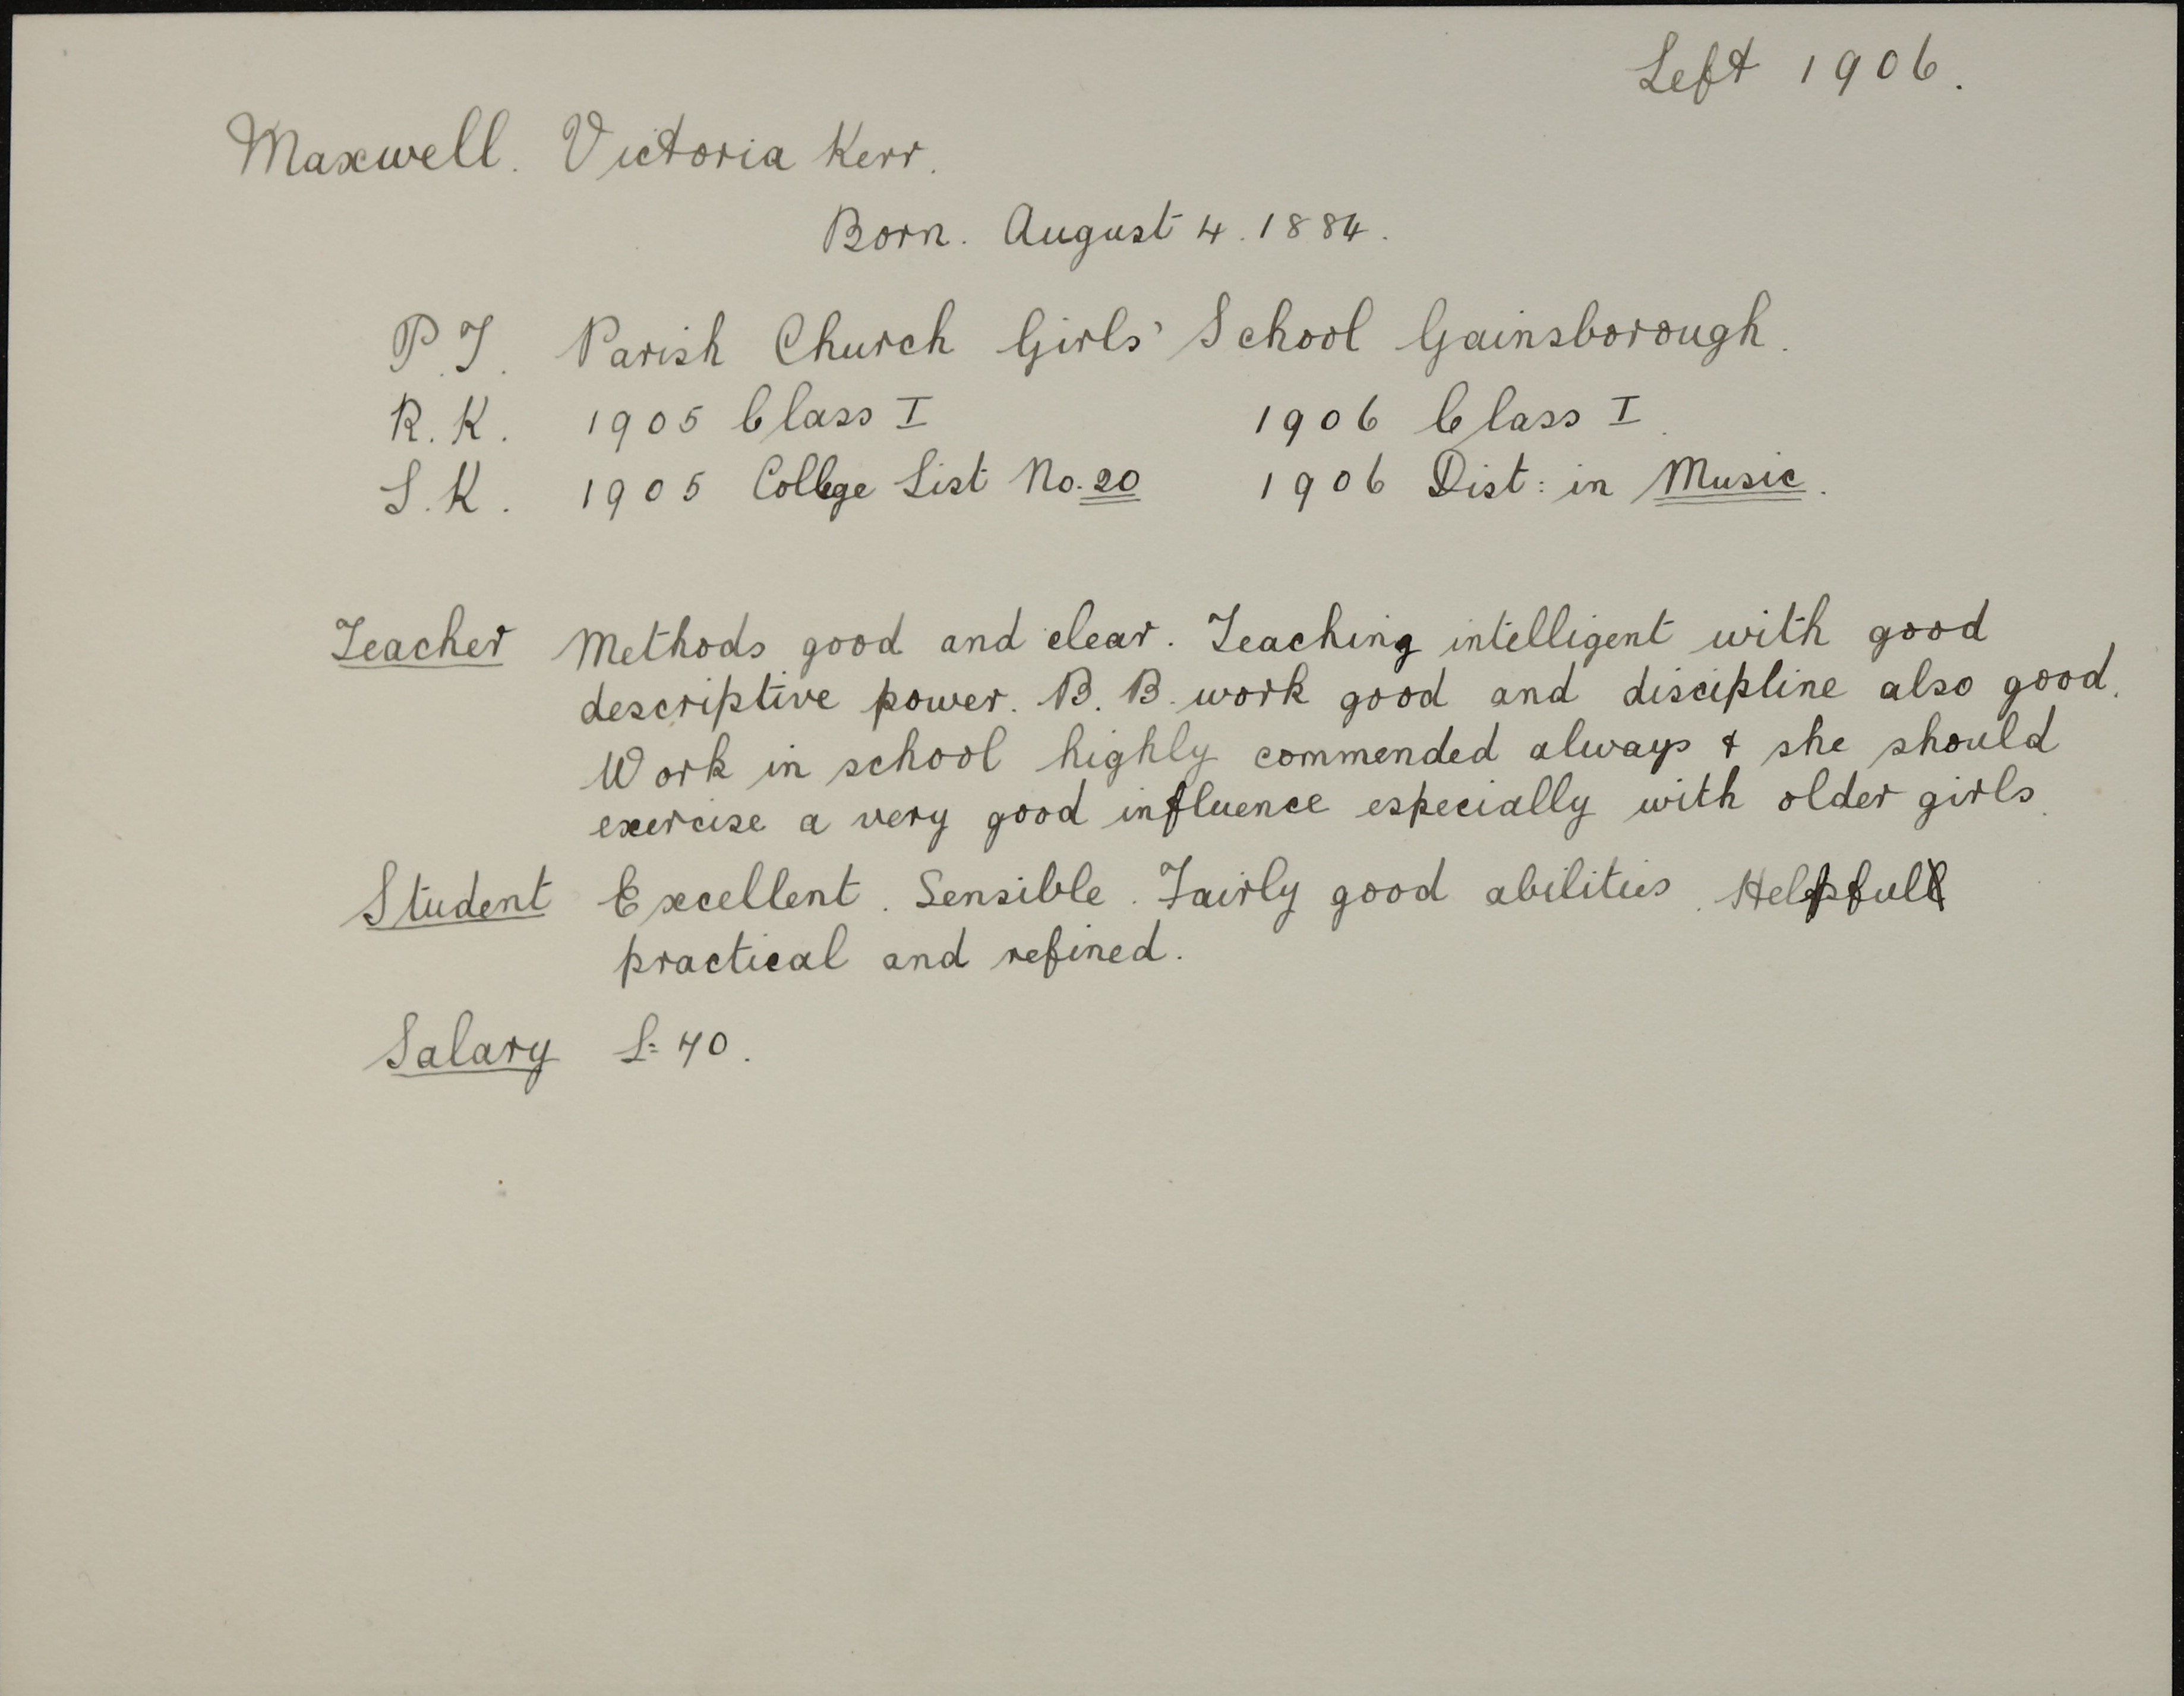 Left 1906.
Maxwell. Victoria Kerr.
Born. August 4. 1884.
P.T. Parish Church Girls' School Gainsborough.
R.K. 1905 Class I 1906 Class I.
S.K. 1905 College List No. 20 1906 Dist: in Music.
Teacher Methods good and clear. Teaching intelligent with good
descriptive power. B.B. work good and discipline also good.
Work in school highly commended always & she should
exercise a very good influence especially with older girls.
Student Excellent. Sensible. Fairly good abilities. Helpful
practical and refined.
Salary £: 70.